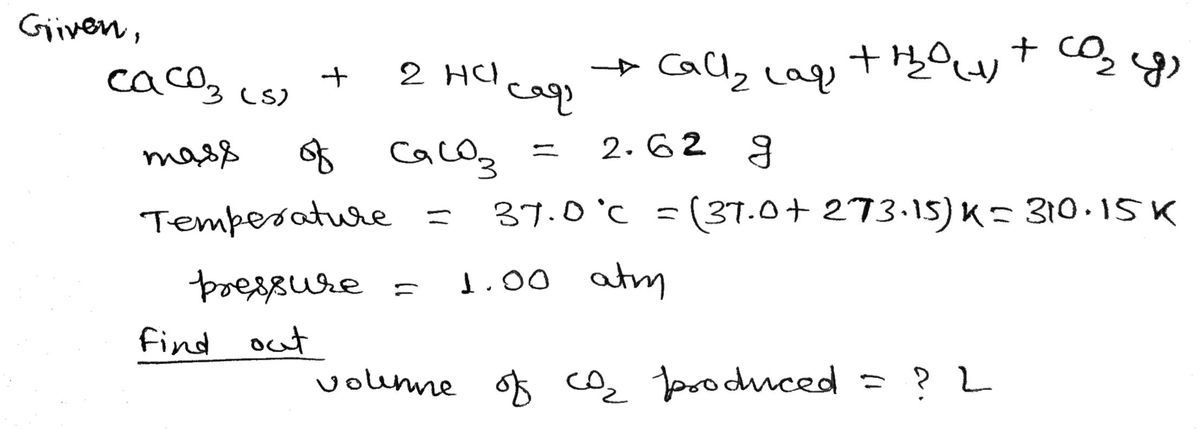 Given,
CaCO₃ (s) + 2 HCl (aq) → CaCl₂ (aq) + H₂O (l) + CO₂ (g)
mass of CaCO₃ = 2.62 g
Temperature = 37.0 °C = (37.0 + 273.15) K = 310.15 K
pressure = 1.00 atm
Find out
volume of CO₂ produced = ? L